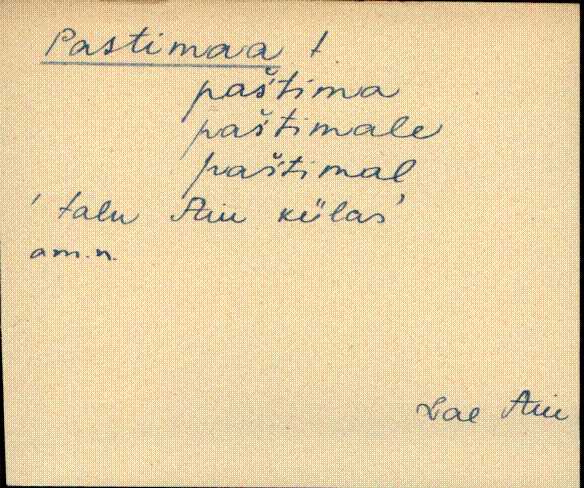 Pastimaa t
paštima
paštimale
paštimal
' talu Aiu külas'
am.n.
Lae Aiu